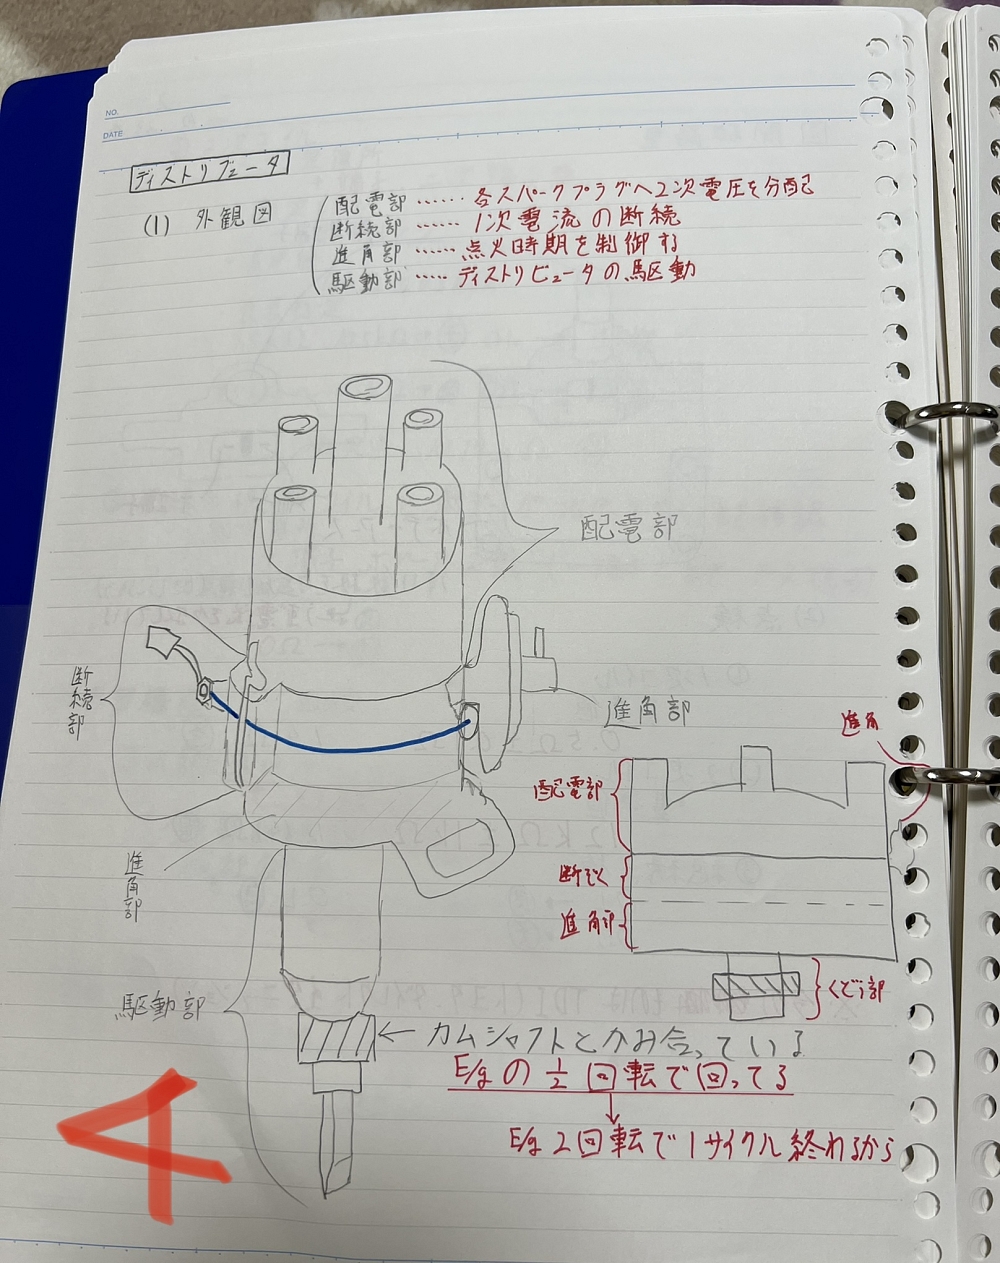 NO.
DATE
ディストリビュータ
(1) 外観図
配電部 …… 各スパークプラグへ2次電圧を分配
断続部 …… 1次電流の断続
進角部 …… 点火時期を制御する
駆動部 …… ディストリビュータの駆動
配電部
断続部
進角部
進角
配電部
断ぞく
進角部
進角部
くどう部
駆動部
← カムシャフトとかみ合っている
E/gの 1/2 回転で回ってる
↓
E/g 2回転で1サイクル終わるから
4